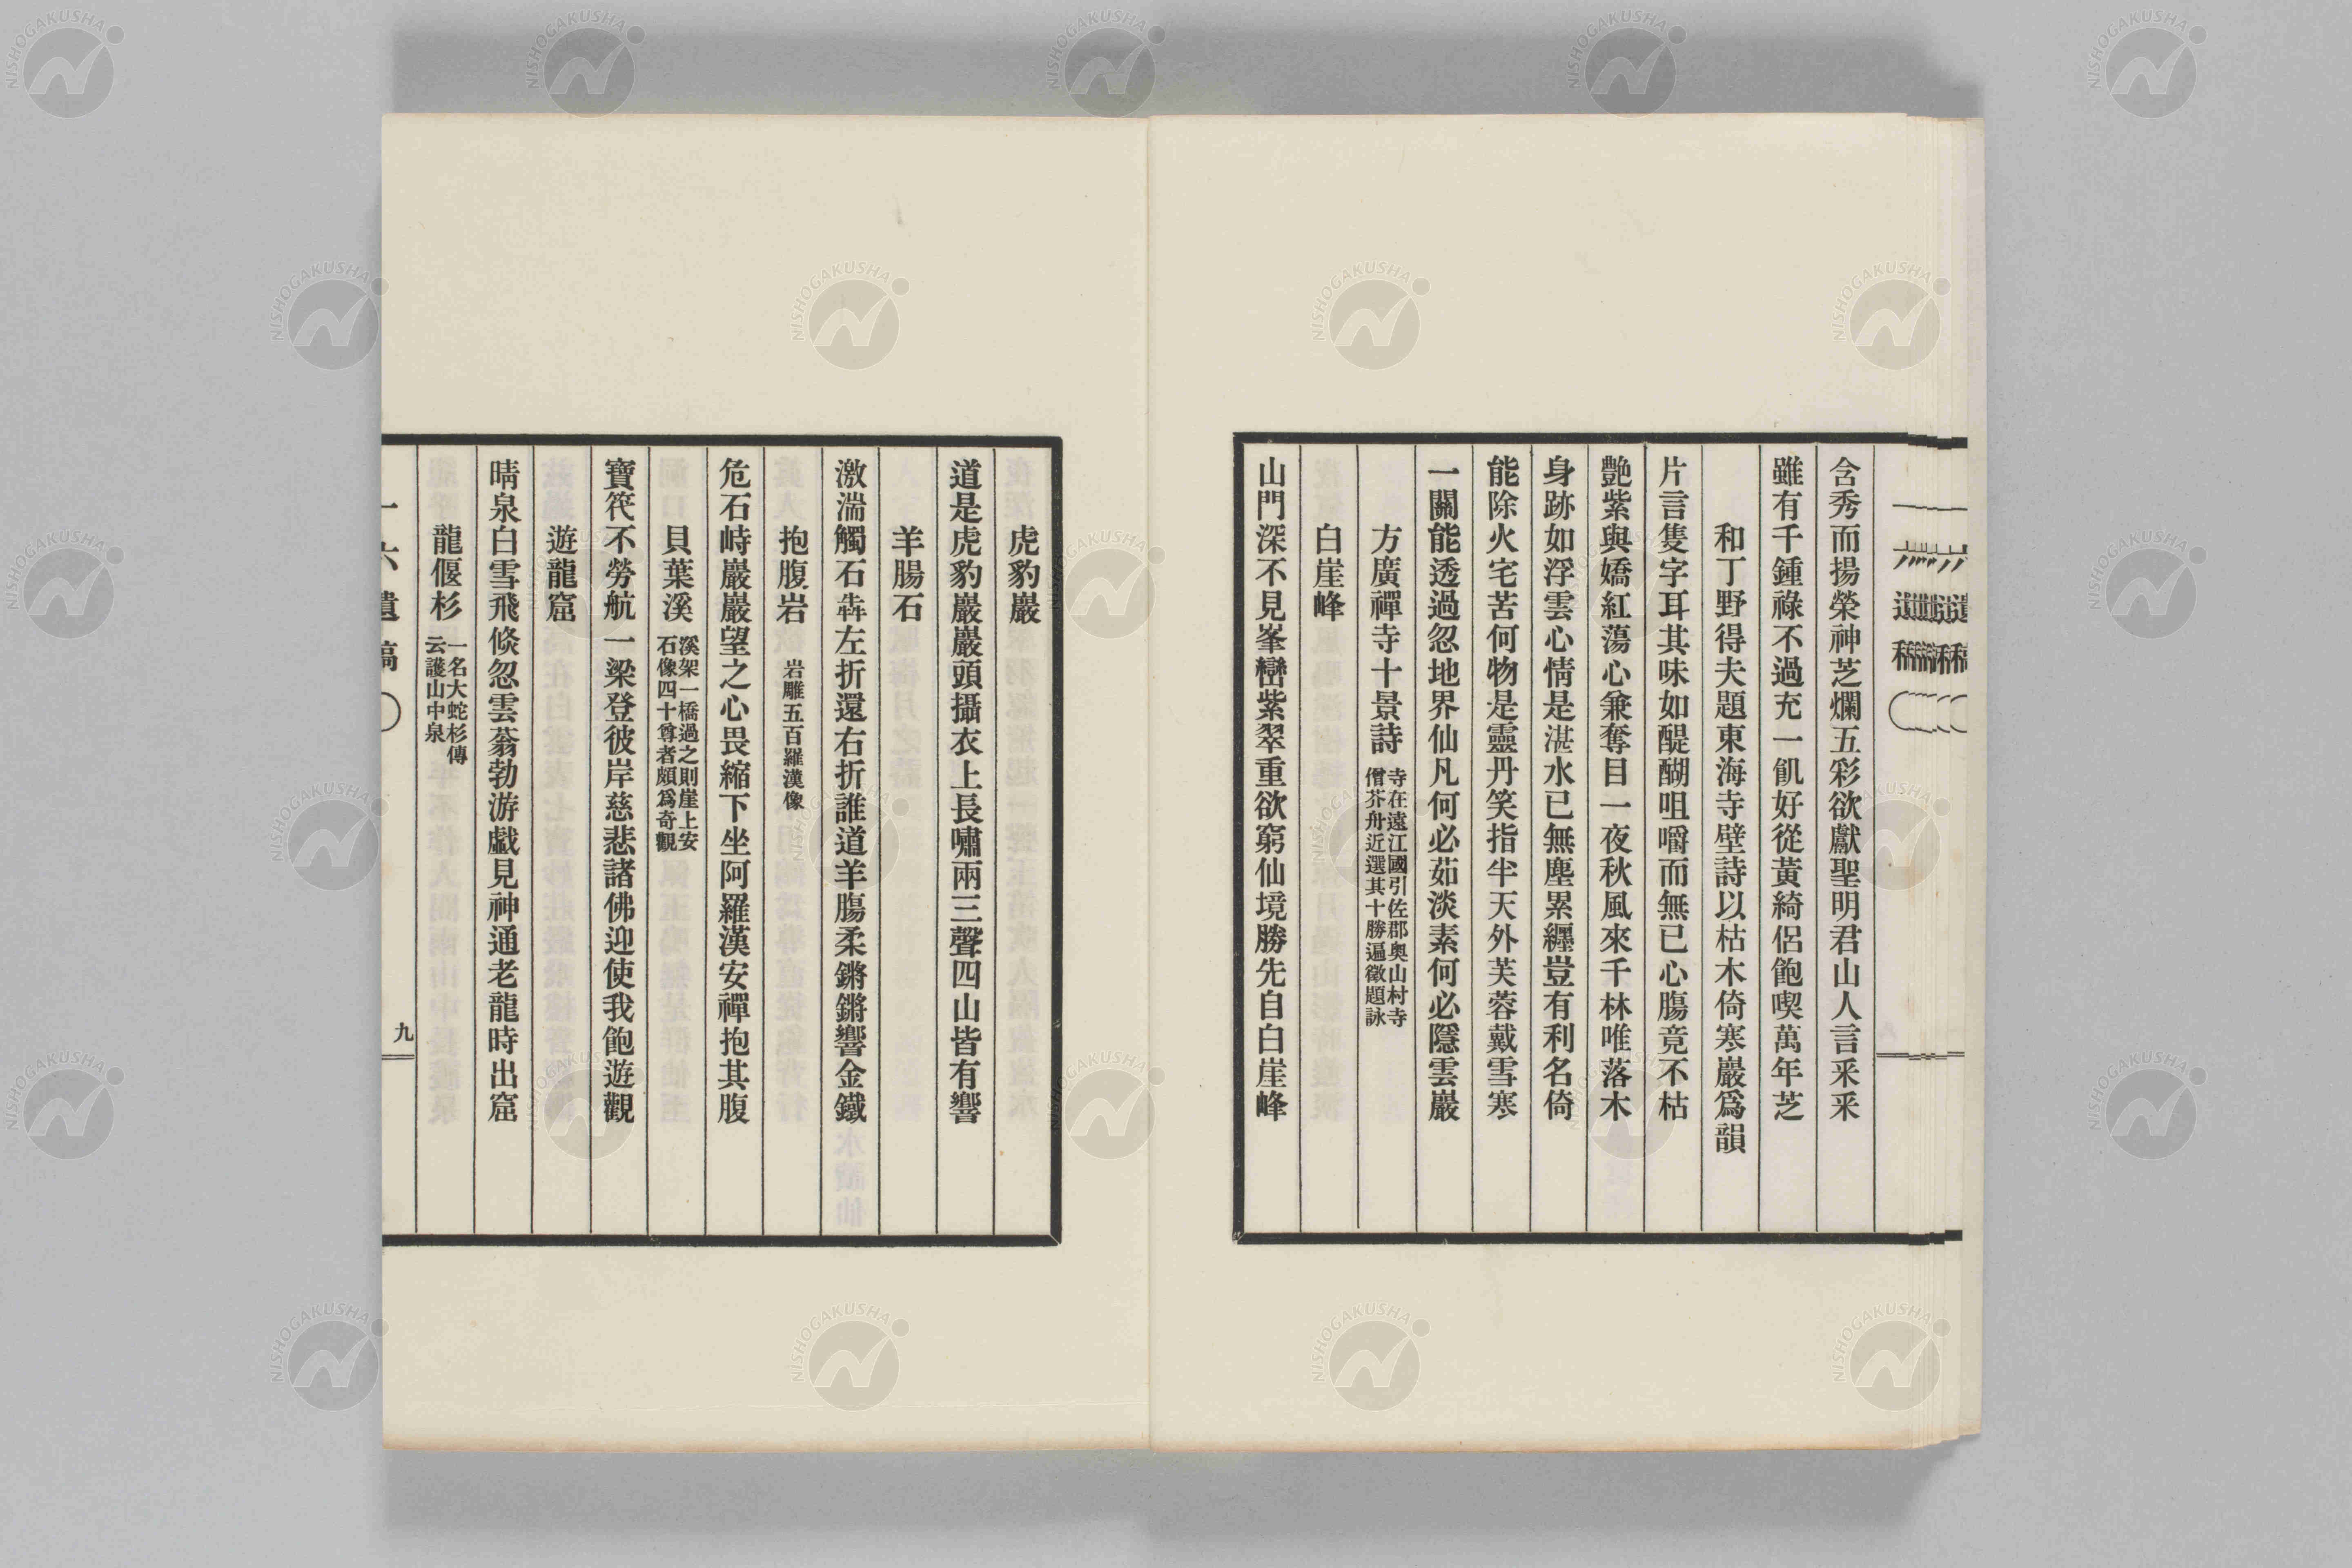 含秀而揚榮神芝爛五彩欲獻聖明君山人言釆釆
雖有千鍾祿不過充一飢好從黃綺侶飽喫萬年芝
和丁野得夫題東海寺壁詩以枯木倚寒巖爲韻
片言隻字耳其味如醍醐咀嚼而無已心膓竟不枯
艷紫與嬌紅蕩心兼奪目一夜秋風來千林唯落木
身跡如浮雲心情是湛水已無塵累纒豈有利名倚
能除火宅苦何物是靈丹笑指半天外芙蓉戴雪寒
一關能透過忽地界仙凡何必茹淡素何必隱雲巖
方廣禪寺十景詩 寺在遠江國引佐郡奧山村寺
僧芥舟近選其十勝遍徵題詠
白崖峰
山門深不見峯巒紫翠重欲窮仙境勝先自白崖峰
虎豹巖
道是虎豹巖巖頭攝衣上長嘯兩三聲四山皆有響
羊腸石
激湍觸石犇左折還右折誰道羊膓柔鏘鏘響金鐵
抱腹岩 岩雕五百羅漢像
危石峙巖巖望之心畏縮下坐阿羅漢安禪抱其腹
貝葉溪 溪架一橋過之則崖上安
石像四十尊者頗爲奇觀
寶筏不勞航一梁登彼岸慈悲諸佛迎使我飽遊觀
遊龍窟
晴泉白雪飛倐忽雲蓊勃游戲見神通老龍時出窟
龍偃杉 一名大蛇杉傳
云護山中泉
一六遺稿
九
NISHOGAKUSHA